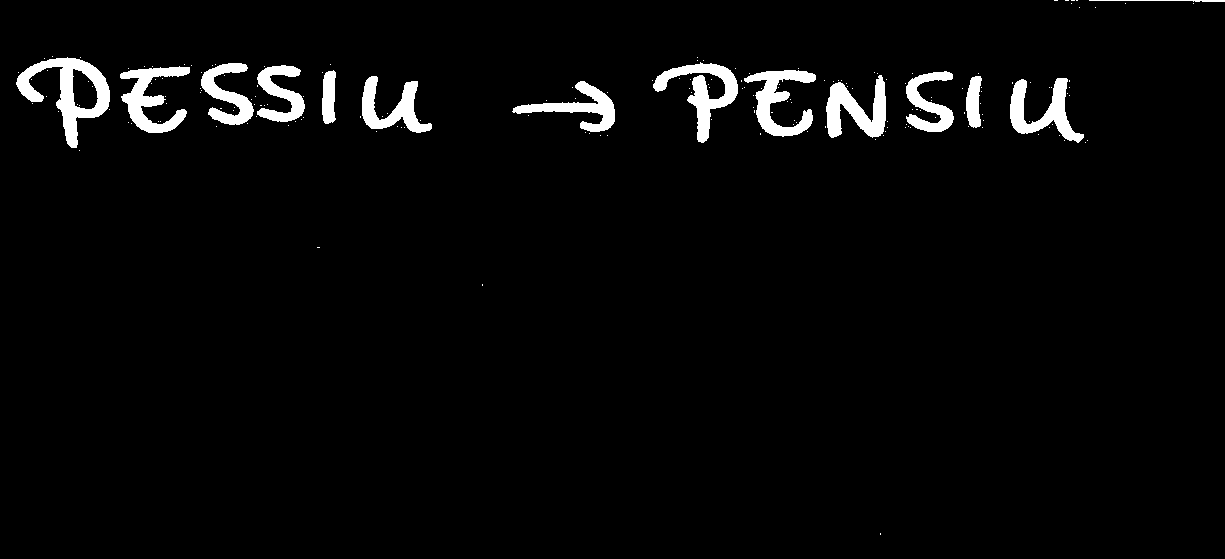 PESSIU → PENSIU